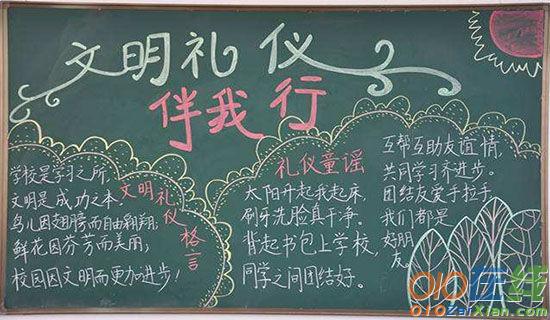 文明礼仪
伴我行
学校是学习之所，
文明是成功之本。
鸟儿因翅膀而自由翱翔；
鲜花因芬芳而美丽；
校园因文明而更加进步！
文明礼仪格言
礼仪童谣
太阳升起我起床，
刷牙洗脸真干净。
背起书包上学校，
同学之间团结好。
互帮互助友谊情，
共同学习齐进步。
团结友爱手拉手，
我们都是
好朋友。
010在线
010ZaiXian.com